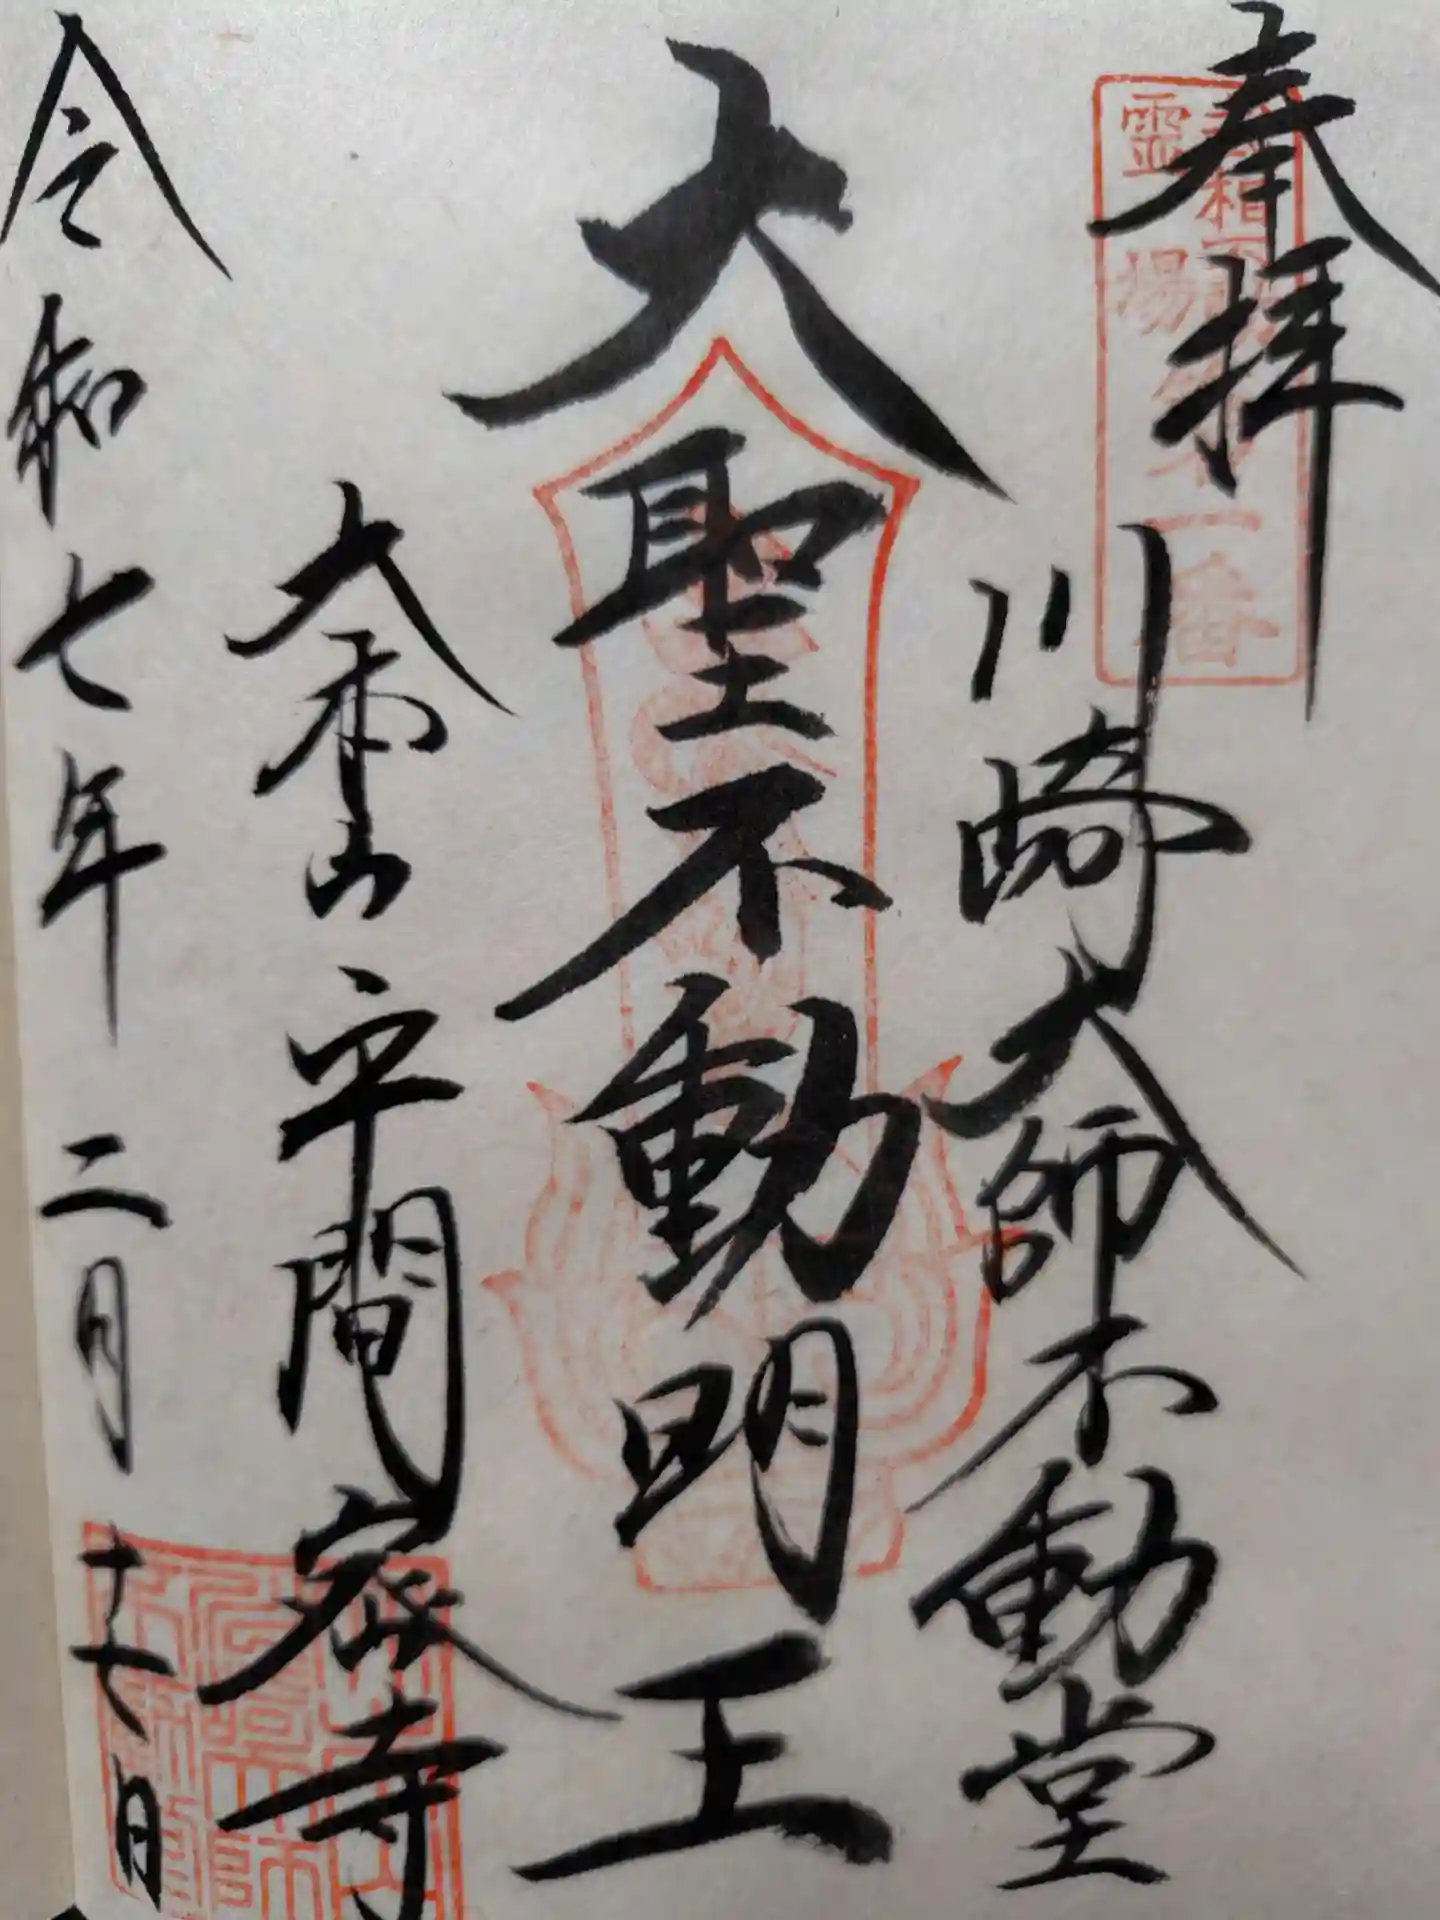 奉拝
川崎大師不動堂
大聖不動明王
大本山平間寺
令和七年二月十七日
霊場
一番